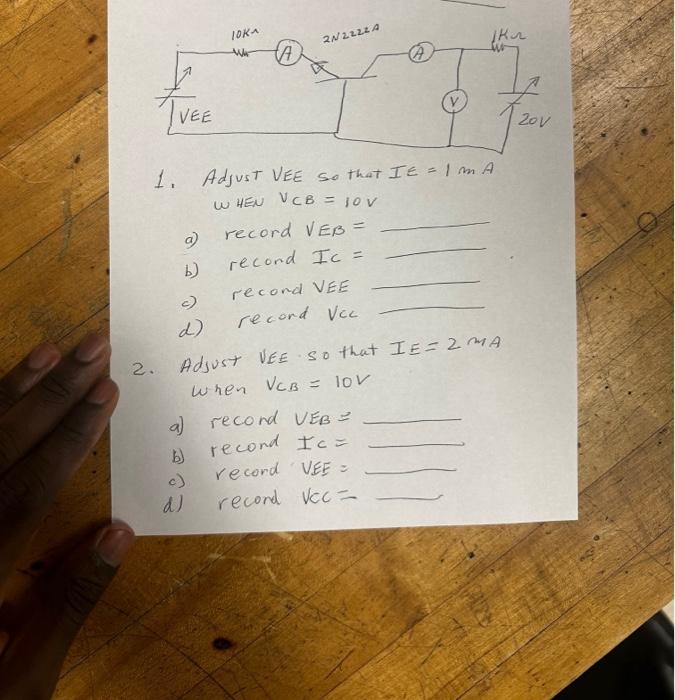 10KΩ 2N2222A 1KΩ
A A
V
VEE 20V
1. Adjust VEE so that IE = 1 mA
WHEN VCB = 10V
a) record VEB =
b) record Ic =
c) record VEE
d) record Vcc
2. Adjust VEE so that IE = 2 mA
when VCB = 10V
a) record VEB =
b) record Ic =
c) record VEE =
d) record Vcc =